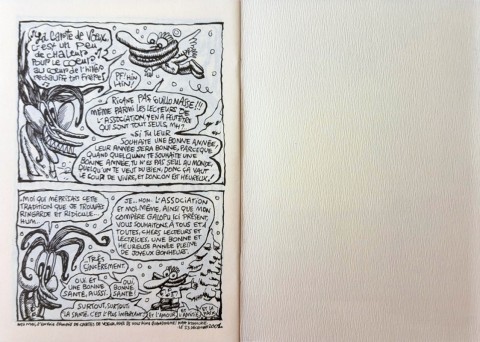 "La carte de vœux,
c'est un peu
de chaleur
pour le cœur
au cœur de l'hiver,
réchauff' ton frère!"
PF! HIN
HIN!
Ricane pas Guillomasse!!
Même parmi les lecteurs de
l'Association, y'en a peut-être
qui sont tout seuls,
Si tu leur
souhaite une bonne année,
leur année sera bonne, parceque
quand quelqu'un te souhaite une
bonne année, tu n'es pas seul au monde,
quelqu'un te veut du bien. Donc ça vaut
le coup de vivre, et doncon est heureux.
...Moi qui méprisais cette
tradition que je trouvais
ringarde et ridicule...
Hum...
Je.. hom.. l'Association
et moi même, ainsi que mon
compère Galopu ici présent,
vous souhaitons à tous et
toutes, chers lecteurs et
lectrices, une bonne et
heureuse année pleine
de joyeux bonheur.
Très
sincèrement.
Oui et
une bonne
santé, aussi.
Oui,
bonne
santé!
Surtout, surtout
la santé. C'est l'plus important!
Et l'amour
et l'amitié
2001